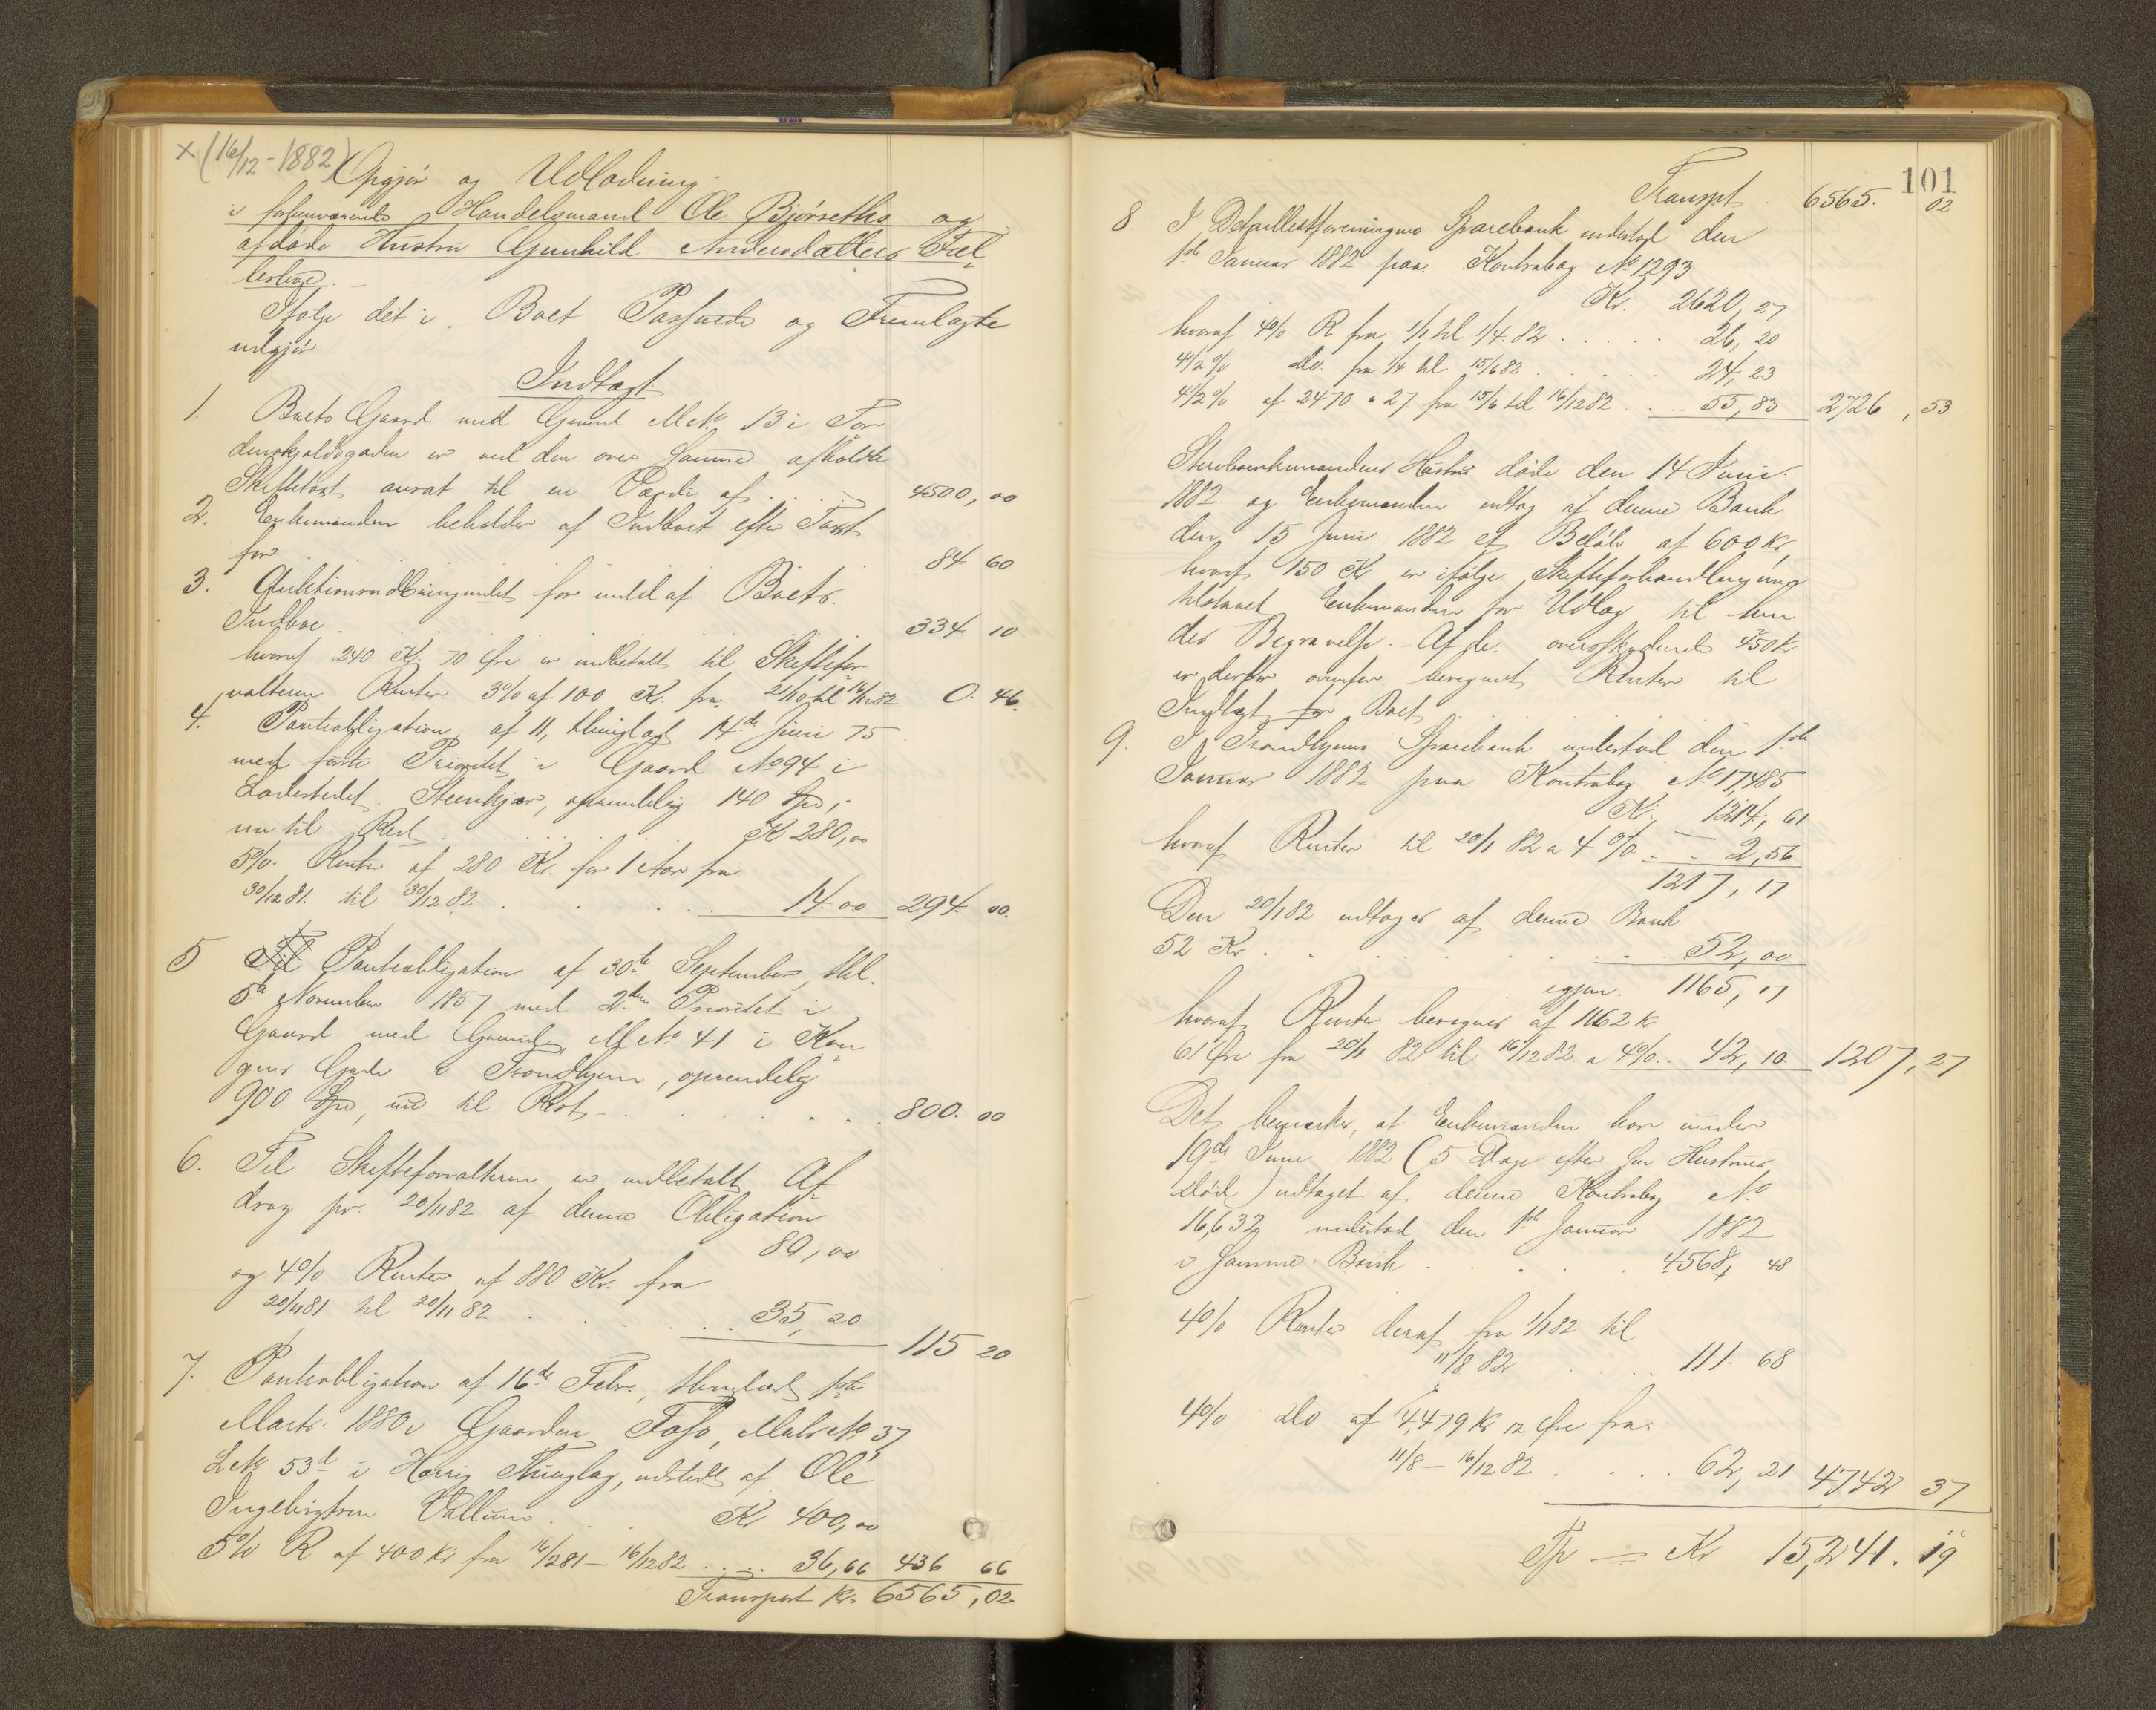 x (16/12-1882)
Opgjør og Udlodning
i forhenværende Handelsmand Ole Bjørseths og
afdøde Hustru Gunhild Andersdatters Fæl
lesbo.
Ifølge det i Boet Passerede og Fremlagte
udgjør
Indtægt
1. Boets Gaard med Grund Mt No 13 i Tor
denskjoldsgaden er ved den over samme afholdte
Skiftetaxt ansat til en Værdi af . . . . 4500,00
2. Enkemanden beholder af Indboet efter Taxt
for . . . 84 60
3. Auktionsudbringendet for endel af Boets
Indboe . . . 334 10
hvoraf 240 Kr. 70 Øre er indbetalt til Skiftefor
valteren Renter 3% af 100 Kr. fra 21/10 til 16/12 82 0. 46.
4. Panteobligation af 11, thinglæst 14de Juni 75
med første Prioritet i Gaard No 94 i
Ladestedet Steenkjær, oprindelig 140 Spd,
nu til Rest . . . Kr 280,00
5% Rente af 280 Kr. for 1 Aar fra
30/12 81. til 30/12 82 . . . 14.00 294. 00.
5 Panteobligation af 30te September, thl.
5te November 1857 med 2den Prioritet i
Gaard med Grund M No 41 i Kon
gens Gade i Trondhjem, oprindelig
900 Spd, nu til Rest . . . 800. 00
6. Til Skifteforvalteren er indbetalt Af
drag pr. 20/11 82 af denne Obligation
80,00
og 4% Renter af 880 Kr. fra
20/11 81 til 20/11 82 . . . 35,20
115 20
7. Panteobligation af 16de Febr., thinglæst 1ste
Marts 1880 i Gaarden Foss, Mats No 37
L No 53d i Thinglag, udstedt af Ole
Ingebrigtsen Vallum . . . Kr 400,00
5% R af 400 Kr fra 16/2 81 - 16/12 82 . . . 36,66 436 66
Transport Kr. 6565,02
101
Transpt 6565. 02
8. I Detaillistforeningens Sparebank indestod den
1ste Januar 1882 paa Kontrabog No 1293
Kr. 2620,27
hvoraf 4% R fra 1/1 til 1/4. 82 . . . . . 26,20
4 1/2 % do. fra 1/4 til 15/6 82 . . . . . 24,23
4 1/2 % af 2470 " 27. fra 15/6 til 16/12 82 . . . 55,83 2726,53
Stervboenkemandens Hustru døde den 14 Juni
1882 og Enkemanden udtog af denne Bank
den 15 Juni 1882 et Beløb af 600 Kr,
hvoraf 150 Kr er ifølge Skifteforhandlingerne
tilstaaet Enkemanden for Udlæg til hen
des Begravelse. Af de overskydende 450 Kr
er derfor ovenfor beregnet Renter til
Indtægt for Boet
9. I Trondhjems Sparebank indestod den 1ste
Januar 1882 paa Kontrabog No 17,485
Kr. 1214,61
hvoraf Renter til 20/1 82 a 4 % . . 2,56
1217,17
Den 20/1 82 udtoges af denne Bank
52 Kr . . . . . 52,00
igjen. 1165,17
hvoraf Renter beregnes af 1162 Kr
61 Øre fra 20/1 82 til 16/12 82 a 4% . . 42,10. 1207,27
Det bemærkes, at Enkemanden har under
19de Juni 1882 (5 Dage efter sin Hustrues
Død) udtaget af denne Kontrabog No
16,632 indestod den 1ste Januar 1882
i samme Bank . . . . 4568, 48
4% Renter deraf fra 1/1 82 til
11/8 82 . . . . 111. 68
4% do af 4,479 Kr 12 Øre fra
11/8 - 16/12 82 . . . . 62,21 4742 37
Tp = Kr 15,241. 19